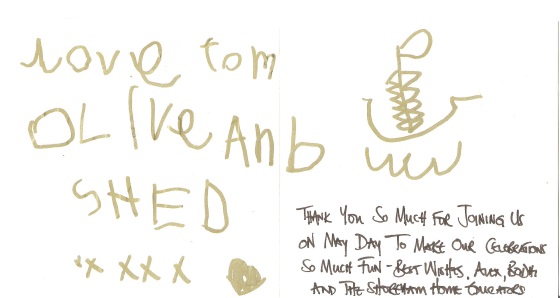 love tom
OLIve ANb
SHED
xx xxx x
THANK YOU SO MUCH FOR JOINING US
ON MAY DAY TO MAKE OUR CELEBRATIONS
SO MUCH FUN - BEST WISHES, ALEX, BODHI
AND THE SHOREHAM HOME EDUCATORS